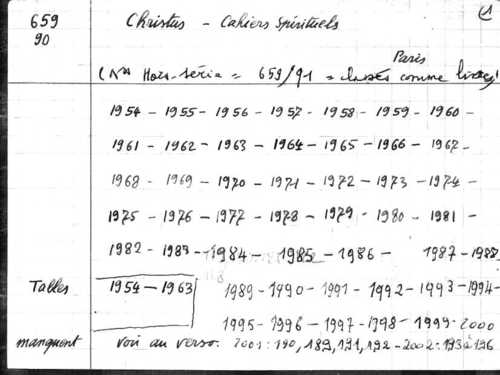 1
659 Christus - Cahiers Spirituels
90
Paris
(Nos Hors-série = 659/91 = classés comme livres)
1954 - 1955 - 1956 - 1957 - 1958 - 1959 - 1960 -
1961 - 1962 - 1963 - 1964 - 1965 - 1966 - 1967 -
1968 - 1969 - 1970 - 1971 - 1972 - 1973 - 1974 -
1975 - 1976 - 1977 - 1978 - 1979 - 1980 - 1981 -
1982 - 1983 - 1984 - 1985 - 1986 - 1987 - 1988
Tables 1954 - 1963 1989 - 1990 - 1991 - 1992 - 1993 - 1994 -
1995 - 1996 - 1997 - 1998 - 1999 - 2000
manquent voir au verso. 2001: 190, 189, 191, 192 - 2002: 193 à 196